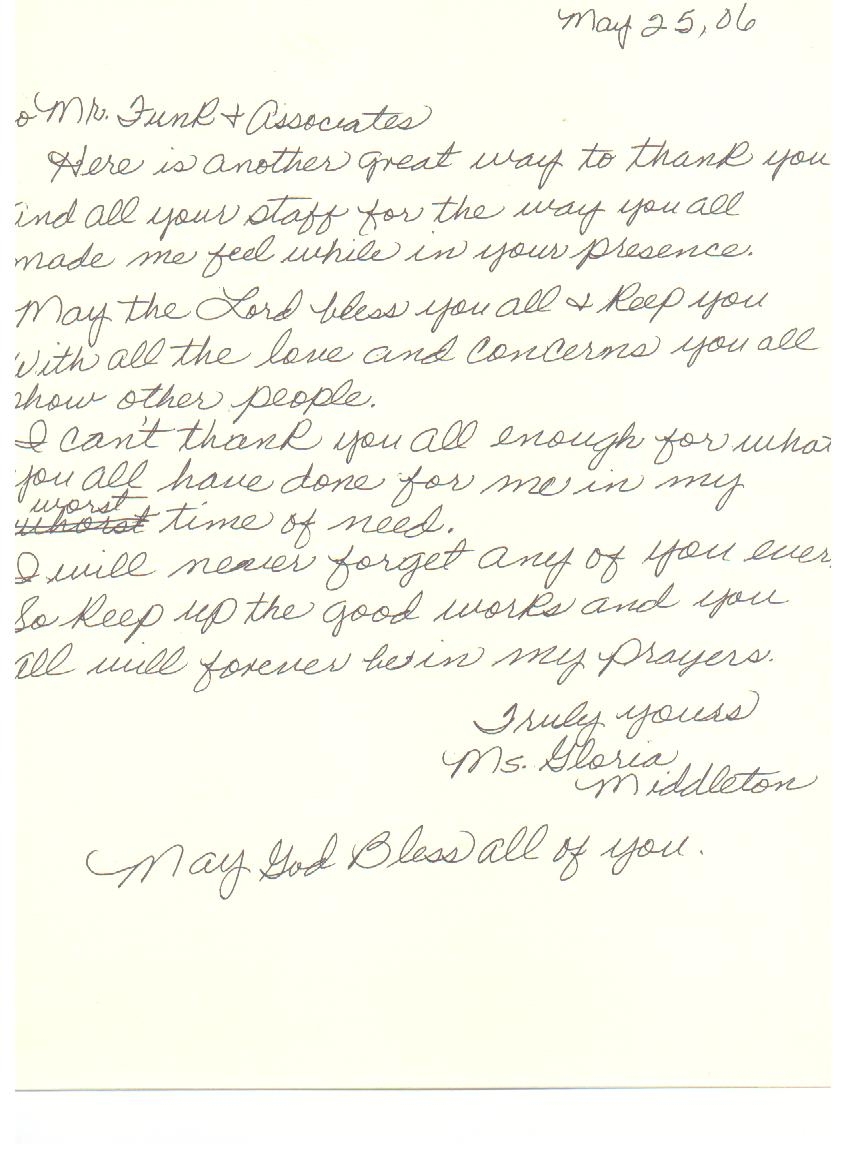 May 25, 06
o Mr. Funk & Associates
Here is another great way to thank you
and all your staff for the way you all
made me feel while in your presence.
May the Lord bless you all & keep you
with all the love and concerns you all
show other people.
I can't thank you all enough for what
you all have done for me in my
worst
whorst time of need.
I will never forget any of you ever.
So keep up the good works and you
all will forever be in my prayers.
Truly yours
Ms. Gloria
Middleton
May God Bless all of you.